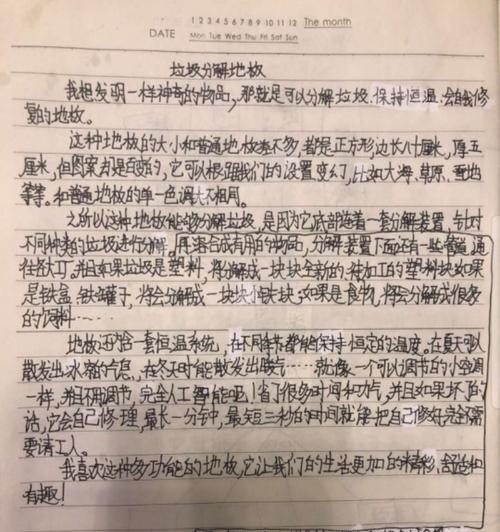 1 2 3 4 5 6 7 8 9 10 11 12 The month
DATE Mon Tue Wed Thu Fri Sat Sun
垃圾分解地板
我想发明一样神奇的物品,那就是可以分解垃圾、保持恒温、会自我修
复的地板。
这种地板的大小和普通地板差不多,都是正方形,边长八十厘米,厚五
厘米,但图案却是百变的,它可以根据我们的设置变幻,比如大海、草原、雪地
等等。和普通地板的单一色调大不相同。
之所以这种地板能够分解垃圾,是因为它底部连着一套分解装置,针对
不同种类的垃圾进行分解,再溶合成有用的物品,分解装置下面还有一些管道,通
往各大工,并且如果垃圾是塑料,将分解成一块块全新的待加工的塑料块,如果
是铁盒、铁罐子,将会分解成一块块小铁块,如果是食物,将会分解成很多
的饲料……
地板还给一套恒温系统,在不同季节都能保持恒定的温度。在夏天可以
散发出冰凉的气息,在冬天时能散发出暖气……就像一个可以调节的小空调
一样,并且不用调节,完全人工智能呢!省了很多时间和力气,并且如果坏了的
话,它会自己修理,最长一分钟,最短三秒的时间就能把自己修好,完全不需
要请工人。
我喜欢这种多功能的地板,它让我们的生活更加的精彩、舒适和
有趣!